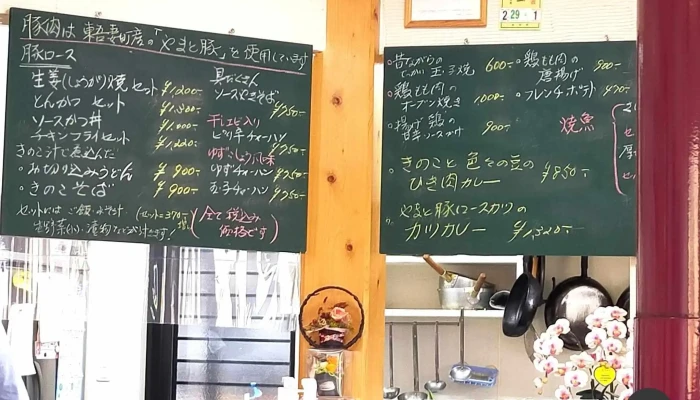 豚肉は 東吾妻町産の「やまと豚」を使用しています
豚ロース
生姜(しょうが)焼セット ¥1,200-
とんかつ セット ¥1,300-
ソースかつ丼 ¥1,000-
チキンフライセット ¥1,220-
きのこ汁で煮込んだ
・お切り込みうどん ¥900-
・きのこそば ¥900-
セットには ご飯・みそ汁
(セット=370-
具だくさん
ソースやきそば ¥750-
干しエビ入り
ピリ辛チャーハン ¥750-
ゆずこしょう風味
ゆずチャーハン ¥750-
玉子チャーハン ¥750-
全て税込み
価格です
・昔ながらの
玉子焼 600-
・鶏もも肉の
オーブン焼き 1,000-
・揚げ鶏の
甘辛ソースかけ 900-
・鶏もも肉の
唐揚げ 900-
・フレンチポテト
焼魚
・きのこと色々の豆の
ひき肉カレー ¥850-
・やまと豚ロースカツの
カツカレー ¥1,320-
2 29 1